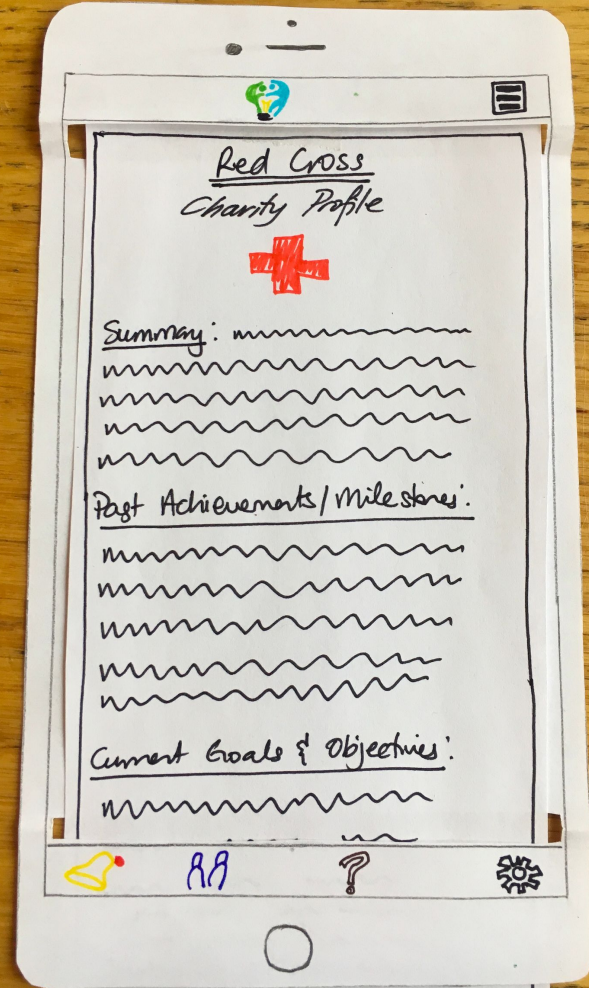 Red Cross
Charity Profile
Summary:
Past Achievements/Milestones:
Current Goals & Objectives:
?